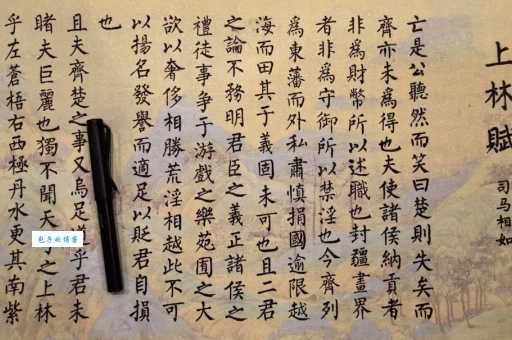 上林賦
司马相如
亡是公聽然而笑曰楚則失矣而
齊亦未爲得也夫使諸侯納貢者
非爲財幣所以述職也封疆畫界
者非爲守御所以禁淫也今齊列
爲東藩而外私肅慎捐國逾限越
海而田其于義固未可也且二君
之論不務明君臣之義正諸侯之
禮徒事爭于游戲之樂苑囿之大
欲以奢侈相勝荒淫相越此不可
以揚名發譽而適足以貶君自損
也
且夫齊楚之事又烏足道乎君未
睹夫巨麗也獨不聞天子之上林
乎左蒼梧右西極丹水更其南紫